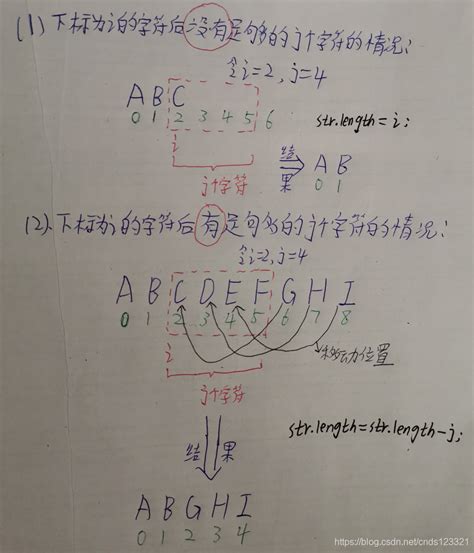 (1)下标为i的字符后没有足够的j个字符的情况:
令i=2,j=4
A B C
0 1 2 3 4 5 6
str.length=i;
i
j个字符
结果
A B
0 1
(2).下标为i的字符后有足够的j个字符的情况:
令i=2,j=4
A B C D E F G H I
0 1 2 3 4 5 6 7 8
i
移动位置
j个字符
str.length=str.length-j;
结果
A B G H I
0 1 2 3 4
https://blog.csdn.net/cnds123321